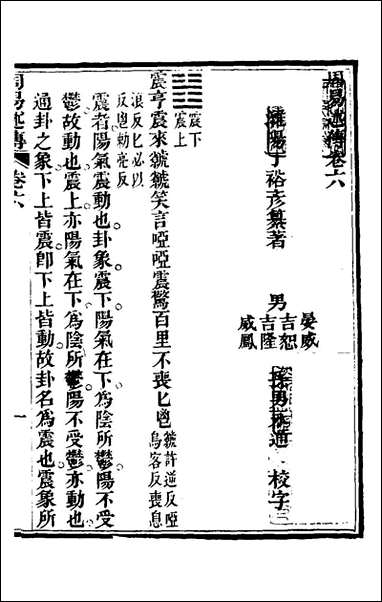 周易述傳卷六
丁裕彥纂著
男
晏威
吉恕
吉隆
威鳳
校字
震下
震上
震亨震來虩虩笑言啞啞震驚百里不喪匕鬯虩許逆反啞烏客反喪息
浪反匕必以反鬯勅亮反
震者陽氣震動也卦象震下陽氣在下為陰所鬱陽不受
鬱故動也震上亦陽氣在下為陰所鬱陽不受鬱亦動也
通卦之象下上皆震卽下上皆動故卦名為震也震象所
周易述傳 卷六 一